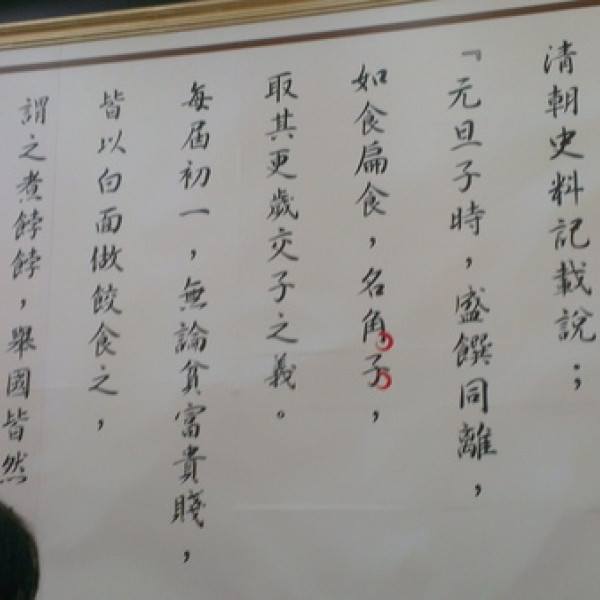 清朝史料記載說：，
『元旦子時，盛饌同離，
如食扁食，名角子，
取其更歲交子之義。
每屆初一，無論貧富貴賤，
皆以白面做餃食之，
謂之煮餑餑，舉國皆然